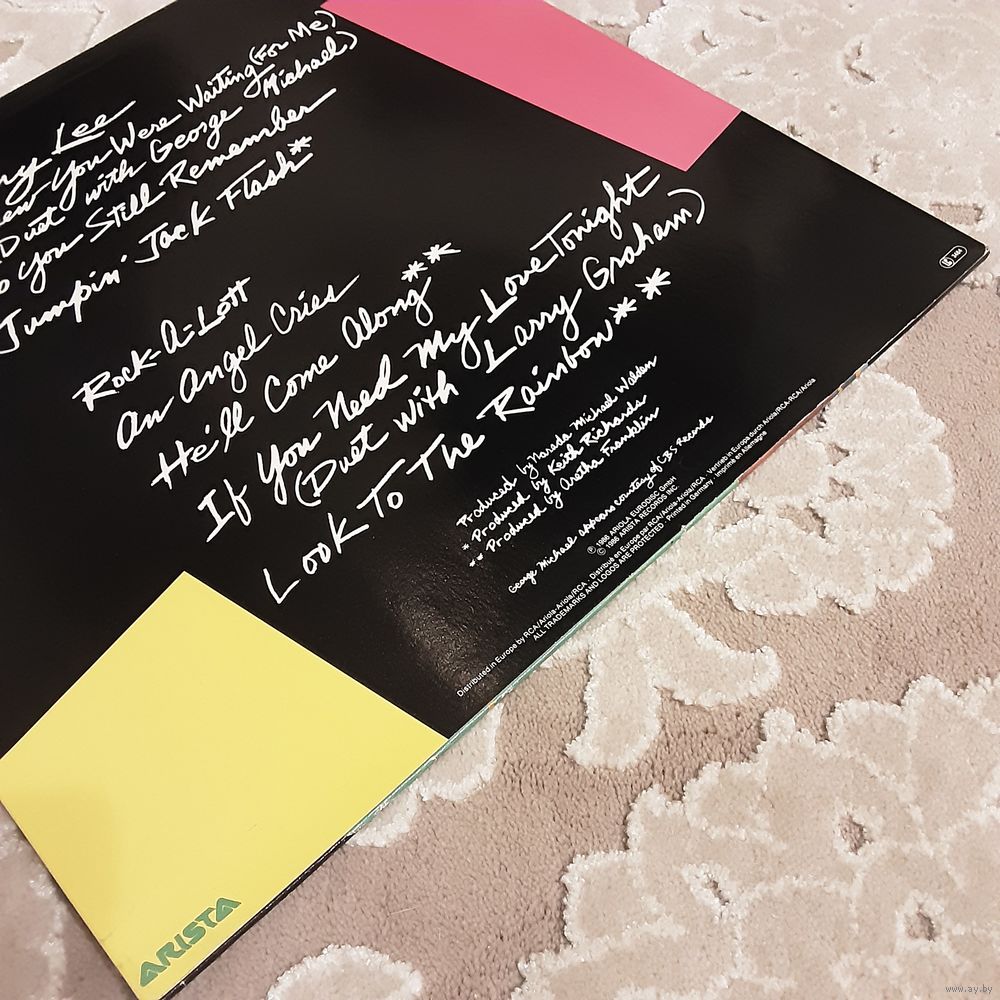 Lee
You Were Waiting (For Me)
Duet with George Michael)
You Still Remember
Jumpin' Jack Flash*
Rock-A-Lott
An Angel Cries
He'll Come Along**
If You Need My Love Tonight
(Duet With Larry Graham)
Look To The Rainbow**
Produced by Narada Michael Walden
* Produced by Keith Richards
** Produced by Aretha Franklin
George Michael appears courtesy of CBS Records
℗ 1986 ARIOLA EURODISC GmbH
© 1986 ARISTA RECORDS INC.
Distributed in Europe by RCA/Ariola-Ariola/RCA · Distribué en Europe par RCA/Ariola-Ariola/RCA · Vertrieb in Europa durch Ariola/RCA-RCA/Ariola
ALL TRADEMARKS AND LOGOS ARE PROTECTED · Printed in Germany · Imprimé en Allemagne
ARISTA
www.ay.by